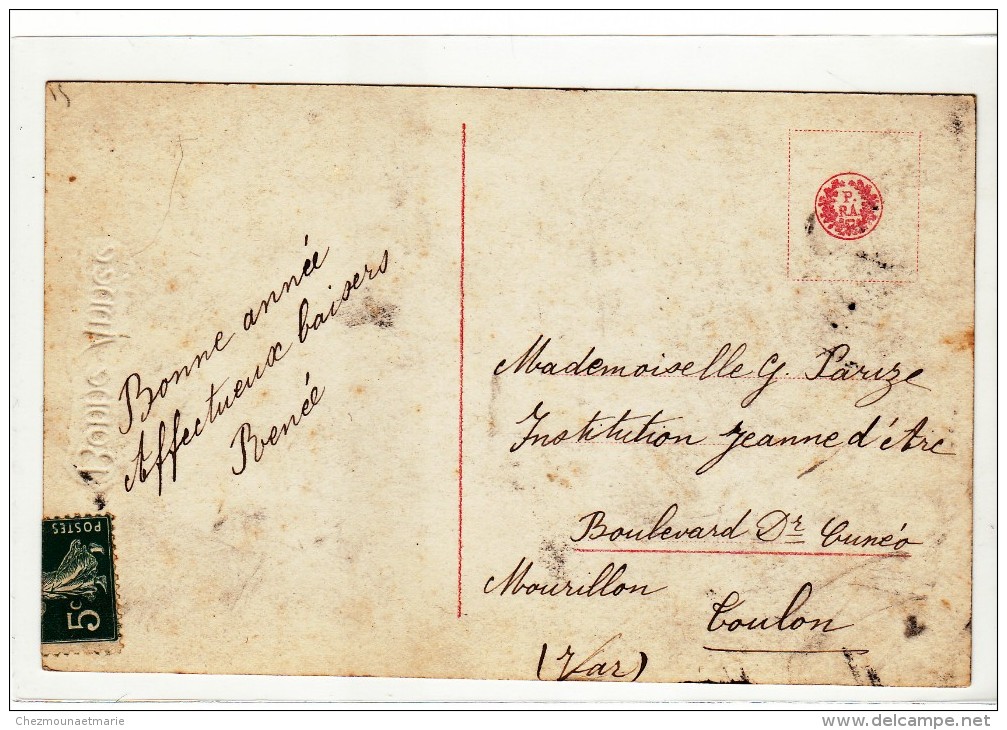 Bonne année
Affectueux baisers
Renée
Bonne Année
POSTES
5c
P.
RA.
Mademoiselle G. Parize
Institution Jeanne d'Arc
Boulevard Dr Cunéo
Mourillon
Toulon
(Var)
Chezmounaetmarie
www.delcampe.net